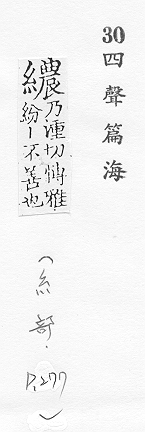 30四聲篇海
繷乃湩切愽雅
紛丨不善也
(糸部．P.277)